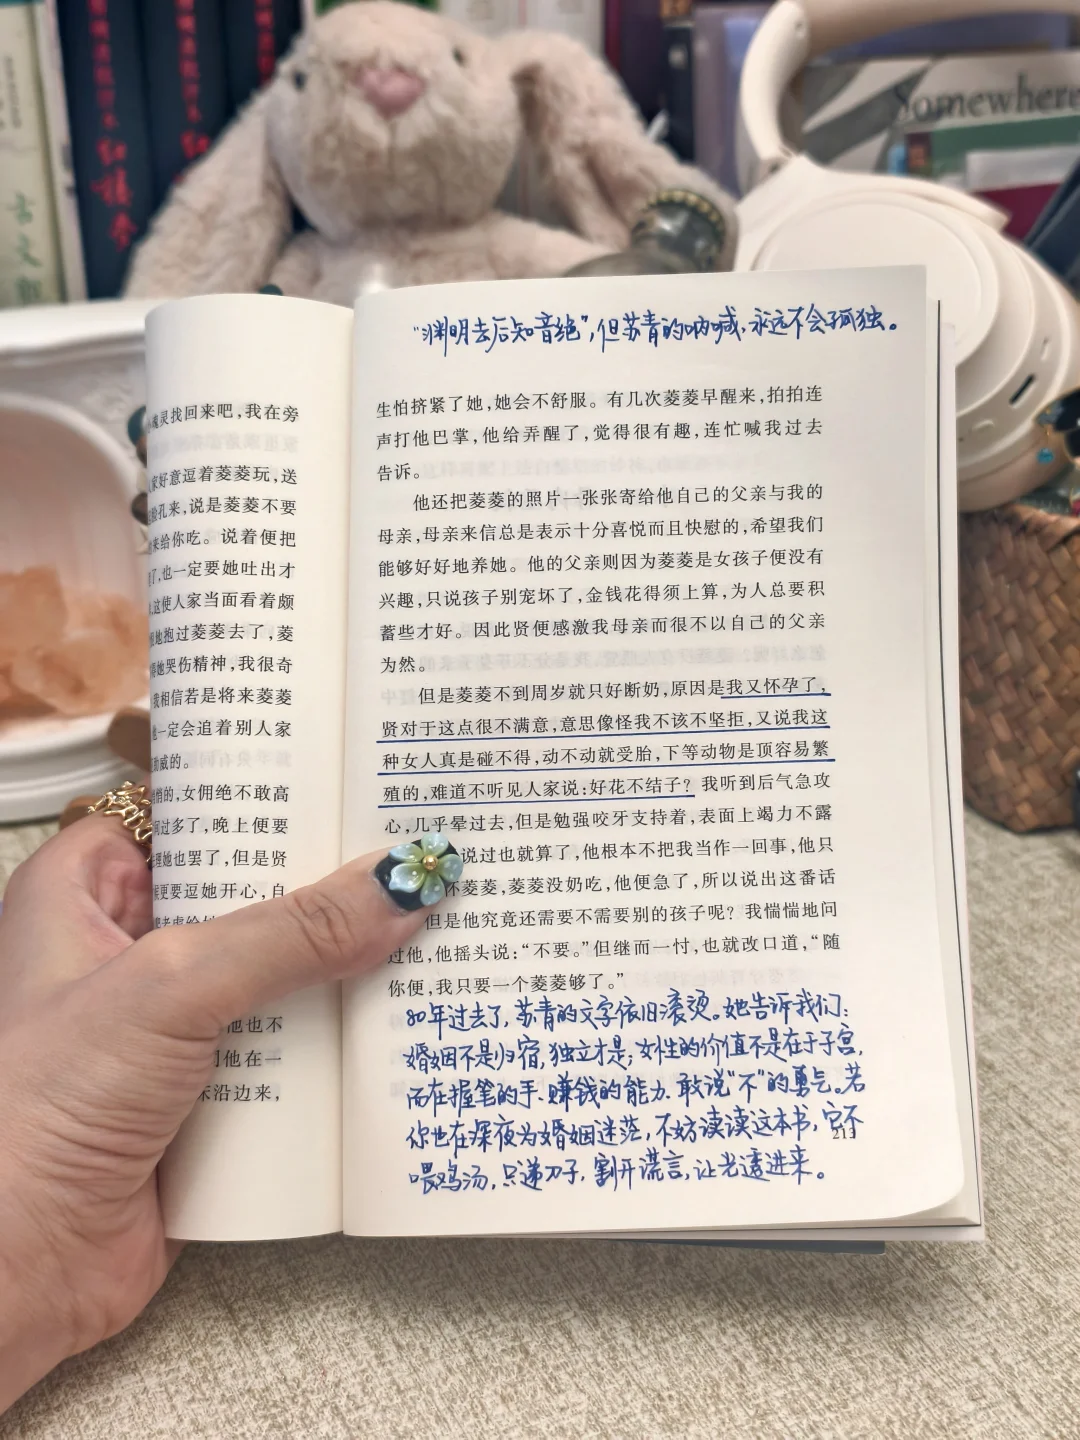 红楼梦
Somewhere
魂灵找回来吧，我在旁
家好意逗着菱菱玩，送
脸孔来，说是菱菱不要
来给你吃。说着便把
了，也一定要她吐出才
这使人家当面看着颇
她抱过菱菱去了，菱
得她哭伤精神，我很奇
我相信若是将来菱菱
一定会追着别人家
助威的。
悄的，女佣绝不敢高
过多了，晚上便要
理她也罢了，但是贤
更要逗她开心，自
他也不
他在一
床沿边来，
“渊明去后知音绝”，但苏青的呐喊，永远不会孤独。
生怕挤紧了她，她会不舒服。有几次菱菱早醒来，拍拍连
声打他巴掌，他给弄醒了，觉得很有趣，连忙喊我过去
告诉。
他还把菱菱的照片一张张寄给他自己的父亲与我的
母亲，母亲来信总是表示十分喜悦而且快慰的，希望我们
能够好好地养她。他的父亲则因为菱菱是女孩子便没有
兴趣，只说孩子别宠坏了，金钱花得须上算，为人总要积
蓄些才好。因此贤便感激我母亲而很不以自己的父亲
为然。
但是菱菱不到周岁就只好断奶，原因是我又怀孕了，
贤对于这点很不满意，意思像怪我不该不坚拒，又说我这
种女人真是碰不得，动不动就受胎，下等动物是顶容易繁
殖的，难道不听见人家说：好花不结子？我听到后气急攻
心，几乎晕过去，但是勉强咬牙支持着，表面上竭力不露
说过也就算了，他根本不把我当作一回事，他只
怀菱菱，菱菱没奶吃，他便急了，所以说出这番话
但是他究竟还需要不需要别的孩子呢？我惴惴地问
过他，他摇头说：“不要。”但继而一忖，也就改口道，“随
你便，我只要一个菱菱够了。”
80年过去了，苏青的文字依旧滚烫。她告诉我们：
婚姻不是归宿，独立才是；女性的价值不是在于子宫，
而在握笔的手、赚钱的能力、敢说“不”的勇气。若
你也在深夜为婚姻迷茫，不妨读读这本书，它不
喂鸡汤，只递刀子，割开谎言，让光透进来。
213